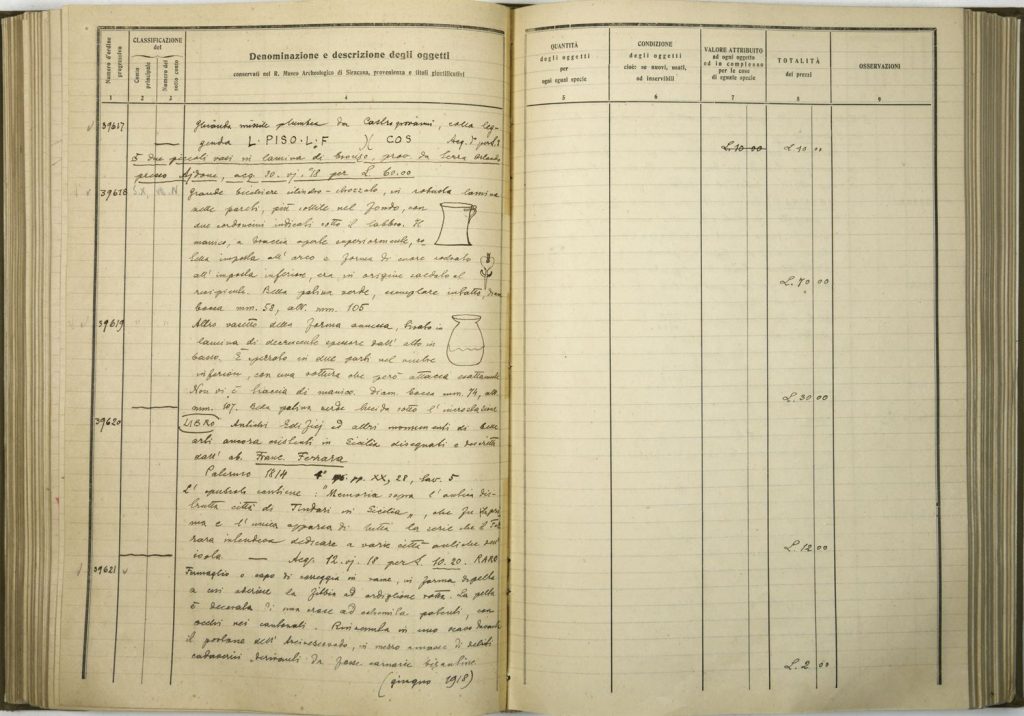 Numero d'ordine progressivo
CLASSIFICAZIONE del
Conto principale
Numero del sotto conto
Denominazione e descrizione degli oggetti
conservati nel R. Museo Archeologico di Siracusa, provenienza e titoli giustificativi
1 2 3 4
39617 Ghianda missile plumbea da Castrogiovanni, colla leg-
genda L·PISO·L·F )( COS Acq.
E due piccoli vasi in lamina di bronzo, prov. da Serra Orlando
presso Ajdone, acq. 20. vj. '18 per £ 60.00
39618 Grande bicchiere cilindro-, in robusta lamina
nelle pareti, più sottile nel fondo, con
due cordoncini indicati sotto il labbro. Il
manico, a braccia aperte superiormente, ro-
busta imposta all' arco e forma di cuore
all' imposta inferiore, era in origine saldato al
recipiente. Bella patina verde, esemplare intatto, diam.
bocca mm. 58, alt. mm. 105
39619 Altro vasetto della forma annessa, tirato in
lamina di decrescente spessore dall' alto in
basso. È spezzato in due parti nel ventre
inferiore, con una rottura che però attacca esattamente
Non vi è traccia di manico. Diam. bocca mm. 74, alt.
mm. 107. Bella patina verde lucida sotto l' incrostazione
39620 LIBRO Antichi Edifizj ed altri monumenti di belle
arti ancora esistenti in Sicilia disegnati e descritti
dall' ab. Franc. Ferrara
Palermo 1814 4° pp. XX, 28, tav. 5
L' opuscolo contiene: "Memoria sopra l' antica dis-
trutta città di Tindari in Sicilia„, che fu la pri-
ma e l' unica apparsa di tutta la serie che il Fer-
rara intendeva dedicare a varie città antiche dell'
isola. — Acq. 12. vj. 18 per £ 10.20. RARO
39621 Fermaglio o capo di correggia in rame, in forma di pelta
a cui aderisce la fibbia ad ardiglione rotta. La pelta
è decorata di una croce ad estremità patenti, con
occhi nei cantonali. Rinvenuta in uno scavo davanti
il portone dell' Arcivescovado, in mezzo a masse di detriti
cadaverici derivanti da fosse carnarie bizantine
(giugno 1918)
QUANTITÀ degli oggetti per ogni egual specie
CONDIZIONE degli oggetti cioè: se nuovi, usati, od inservibili
VALORE ATTRIBUITO ad ogni oggetto od in complesso per le cose di eguale specie
TOTALITÀ dei prezzi
OSSERVAZIONI
5 6 7 8 9
£.10 00 £ 10 00
£. 70 00
£. 30 00
£. 12 00
£. 2 00